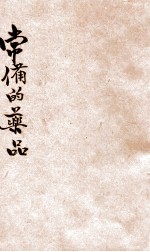 常備的藥品